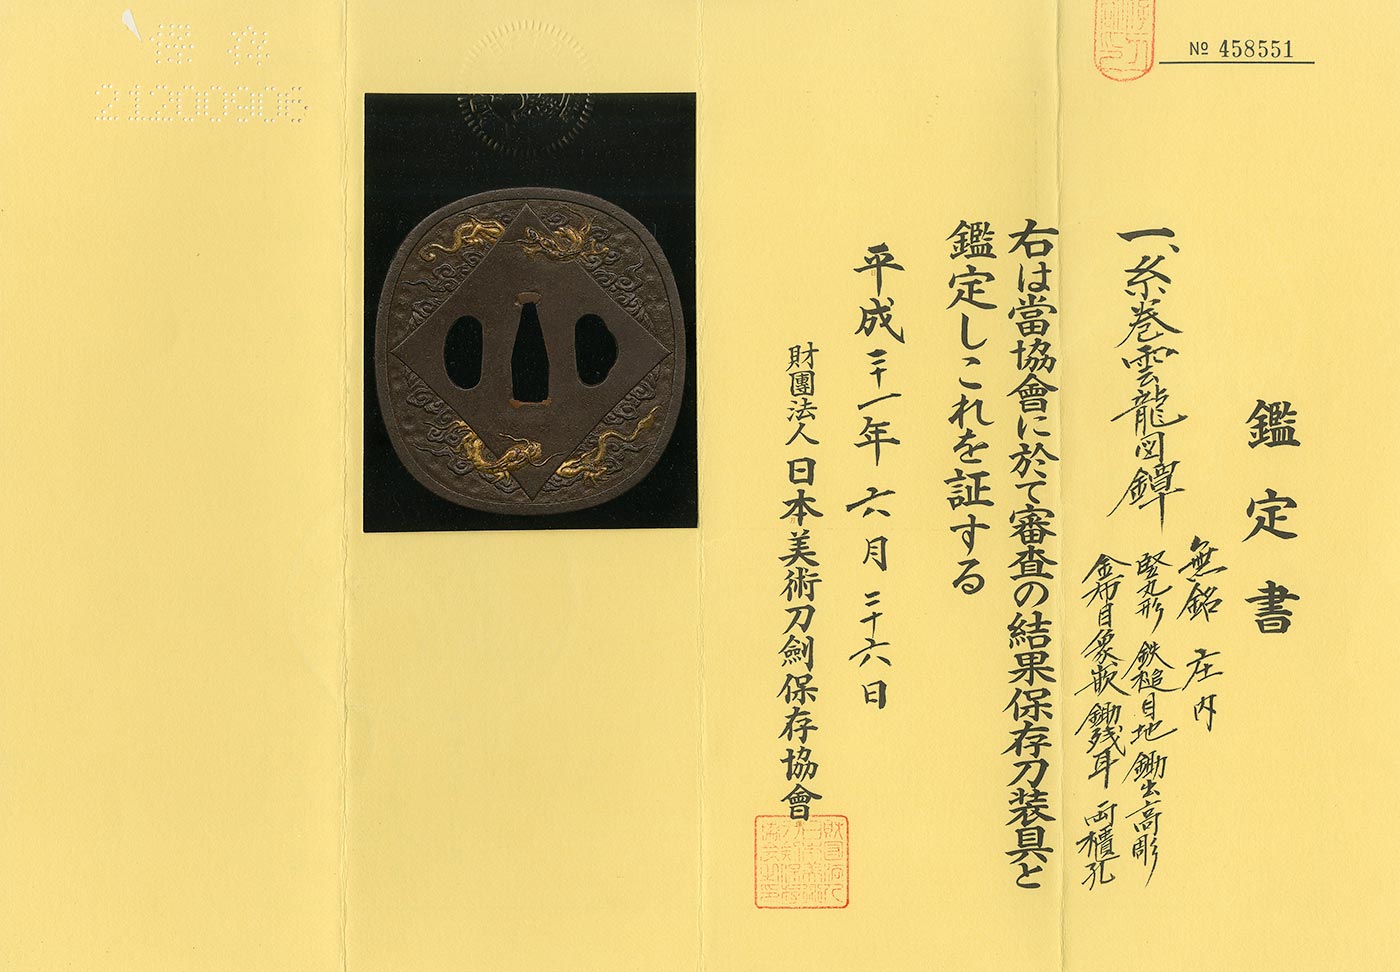 № 458551
鑑定書
一、糸巻雲龍図鐔
無銘 庄内
竪丸形 鉄槌目地 鋤出高彫
金布目象嵌 鋤残耳 両櫃孔
右は當協會に於て審査の結果保存刀装具と
鑑定しこれを証する
平成二十一年六月二十六日
財團法人日本美術刀劍保存協會
保存
21200906